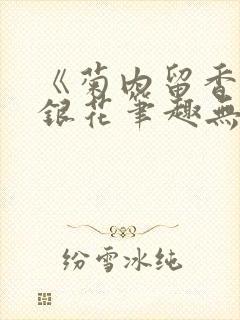 《菊内留香
銀花筆趣無
纷雪冰纯